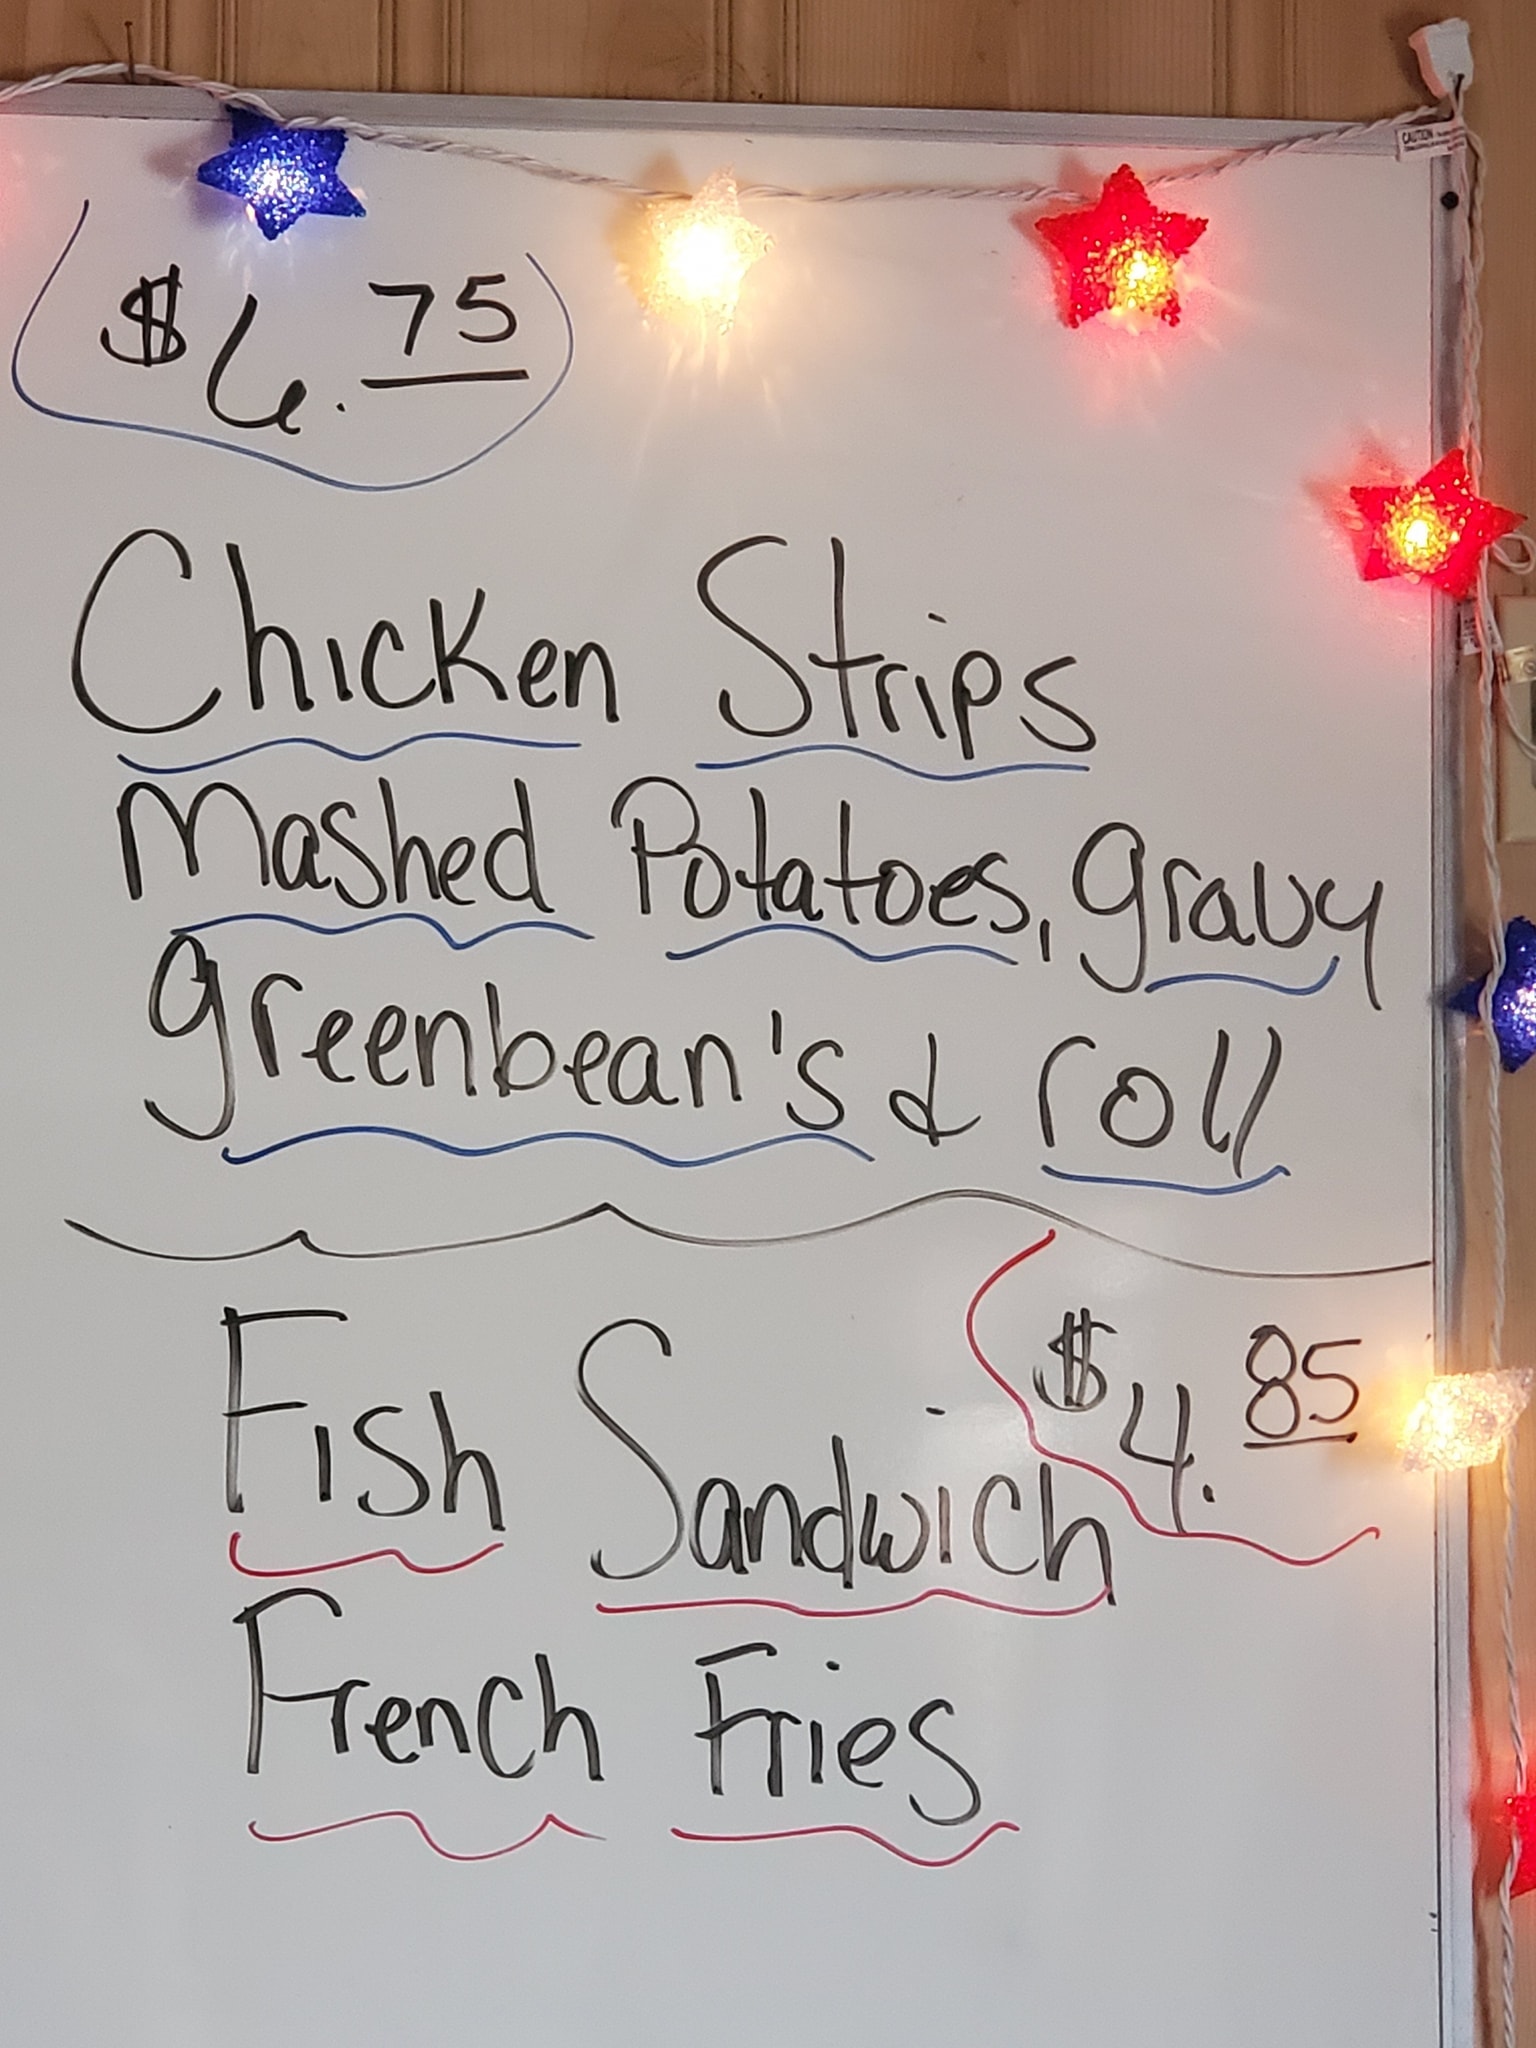 CAUTION
$6.75
Chicken Strips
Mashed Potatoes, gravy
greenbean's & roll
$4.85
Fish Sandwich
French Fries